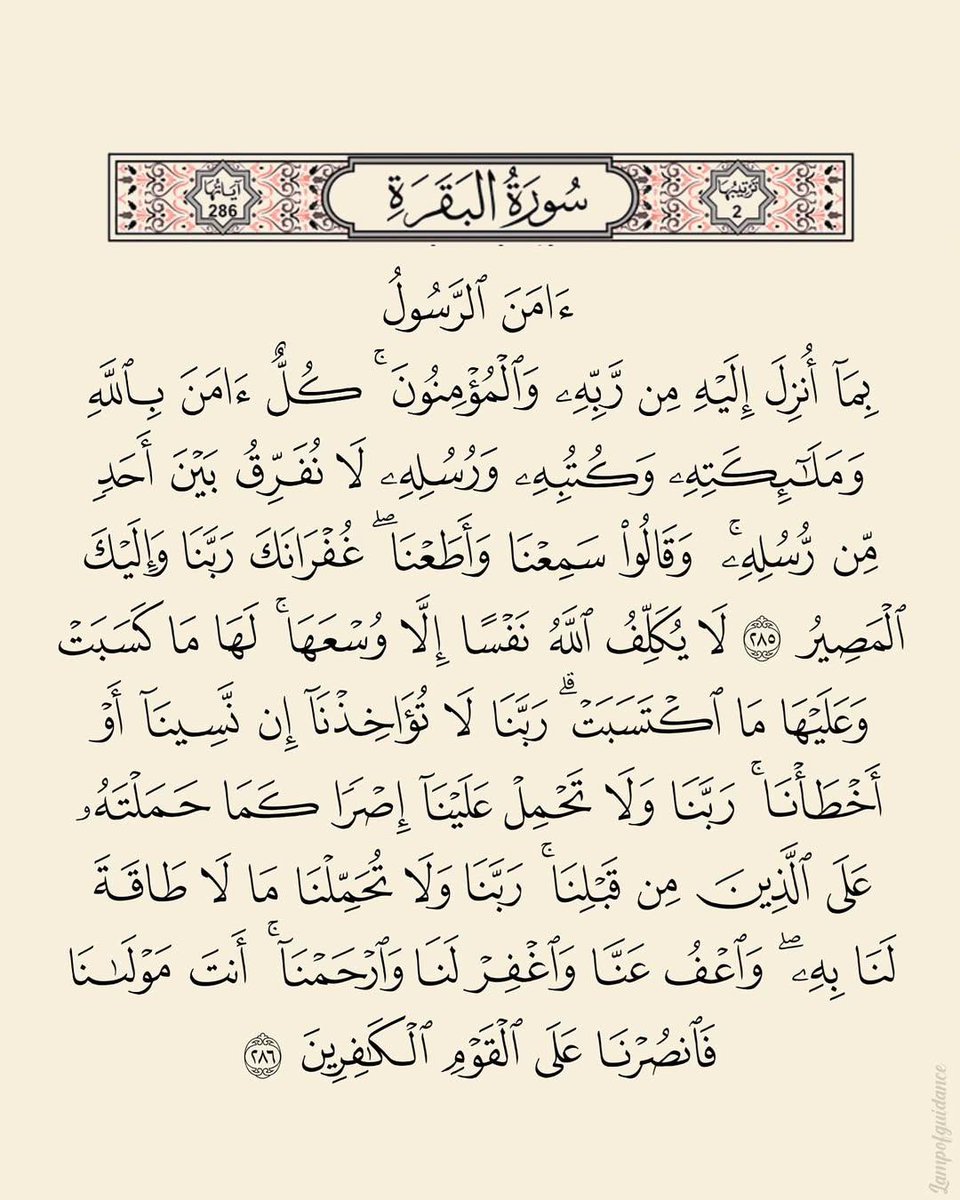 ترتيبها
2
سُورَةُ البَقَرَةِ
آياتها
286
ءَامَنَ ٱلرَّسُولُ
بِمَآ أُنزِلَ إِلَيْهِ مِن رَّبِّهِۦ وَٱلْمُؤْمِنُونَ ۚ كُلٌّ ءَامَنَ بِٱللَّهِ
وَمَلَـٰٓئِكَتِهِۦ وَكُتُبِهِۦ وَرُسُلِهِۦ لَا نُفَرِّقُ بَيْنَ أَحَدٍ
مِّن رُّسُلِهِۦ ۚ وَقَالُوا۟ سَمِعْنَا وَأَطَعْنَا ۖ غُفْرَانَكَ رَبَّنَا وَإِلَيْكَ
ٱلْمَصِيرُ ٢٨٥ لَا يُكَلِّفُ ٱللَّهُ نَفْسًا إِلَّا وُسْعَهَا ۚ لَهَا مَا كَسَبَتْ
وَعَلَيْهَا مَا ٱكْتَسَبَتْ ۗ رَبَّنَا لَا تُؤَاخِذْنَآ إِن نَّسِينَآ أَوْ
أَخْطَأْنَا ۚ رَبَّنَا وَلَا تَحْمِلْ عَلَيْنَآ إِصْرًا كَمَا حَمَلْتَهُۥ
عَلَى ٱلَّذِينَ مِن قَبْلِنَا ۚ رَبَّنَا وَلَا تُحَمِّلْنَا مَا لَا طَاقَةَ
لَنَا بِهِۦ ۖ وَٱعْفُ عَنَّا وَٱغْفِرْ لَنَا وَٱرْحَمْنَآ ۚ أَنتَ مَوْلَىٰنَا
فَٱنصُرْنَا عَلَى ٱلْقَوْمِ ٱلْكَـٰفِرِينَ ٢٨٦
Lampofguidance